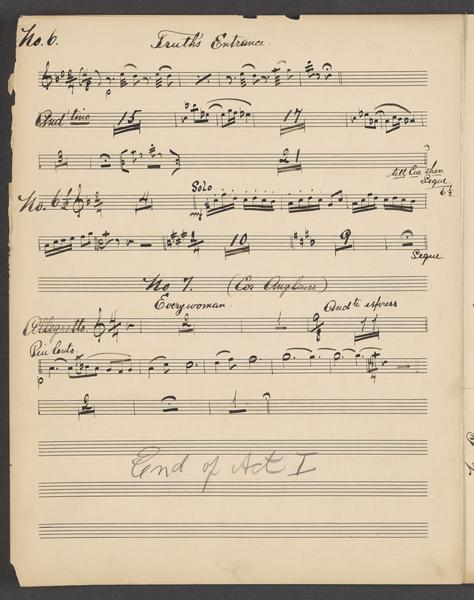 No. 6. Truth's Entrance.
p
And tino 15 17
3 21 till Cue then Segue 6½
No. 6½ 4 Solo mf
10 9 Segue
No 7. (Cor Anglaise)
Everywoman Andte espress
Allegretto. 2 1 11
Piu Lento.
p
2 2 1
End of Act I